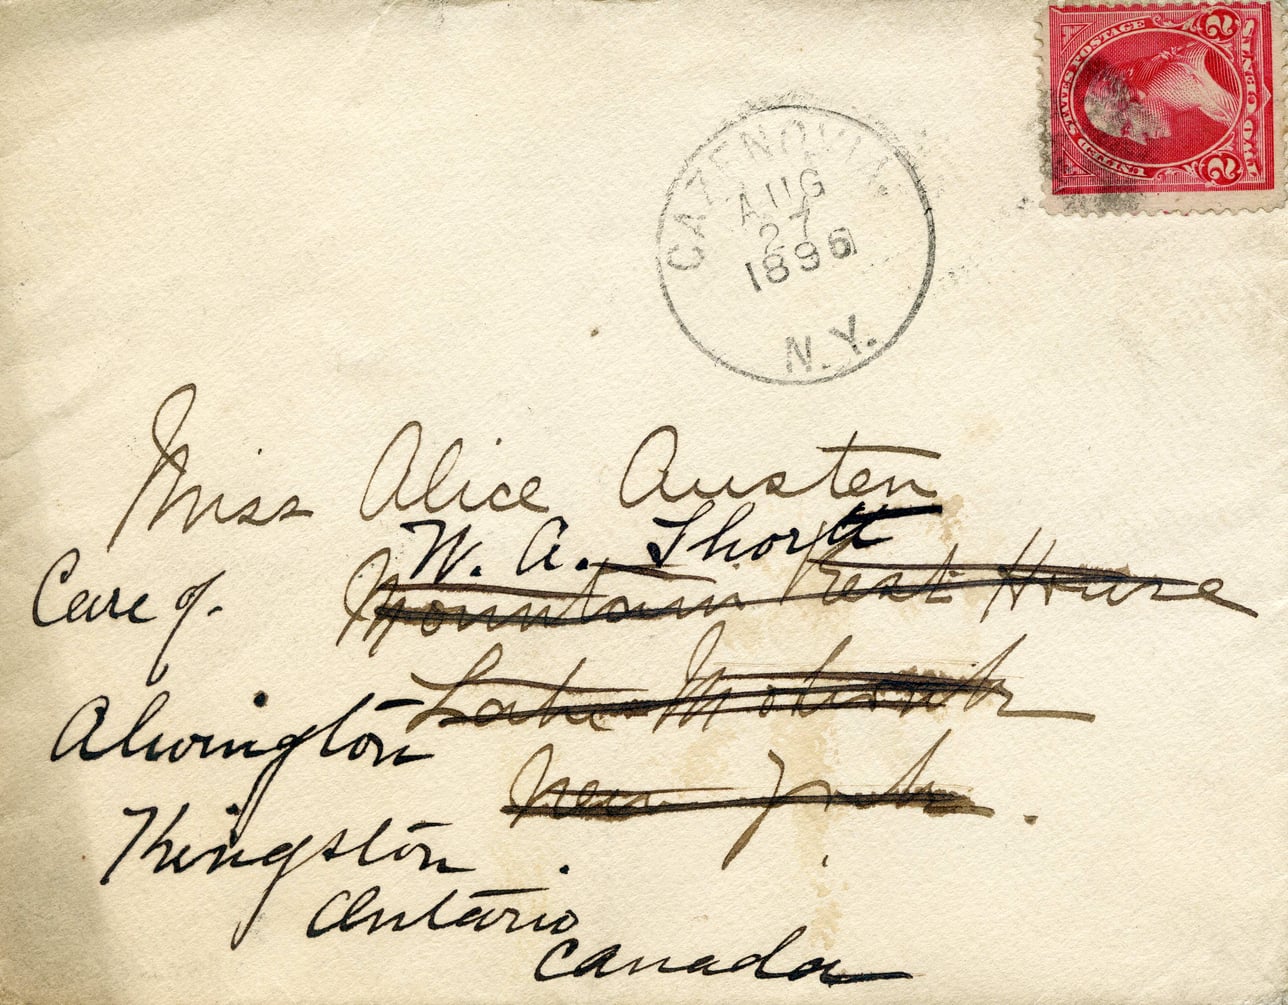 UNITED STATES POSTAGE
2 2
TWO CENTS
CAZENOVIA.
AUG
27
1896
N.Y.
Miss Alice Austen
W. A.
Care of. Mountain Rest House
Alwington Lake Mohonk
New York.
Kingston.
Ontario
Canada